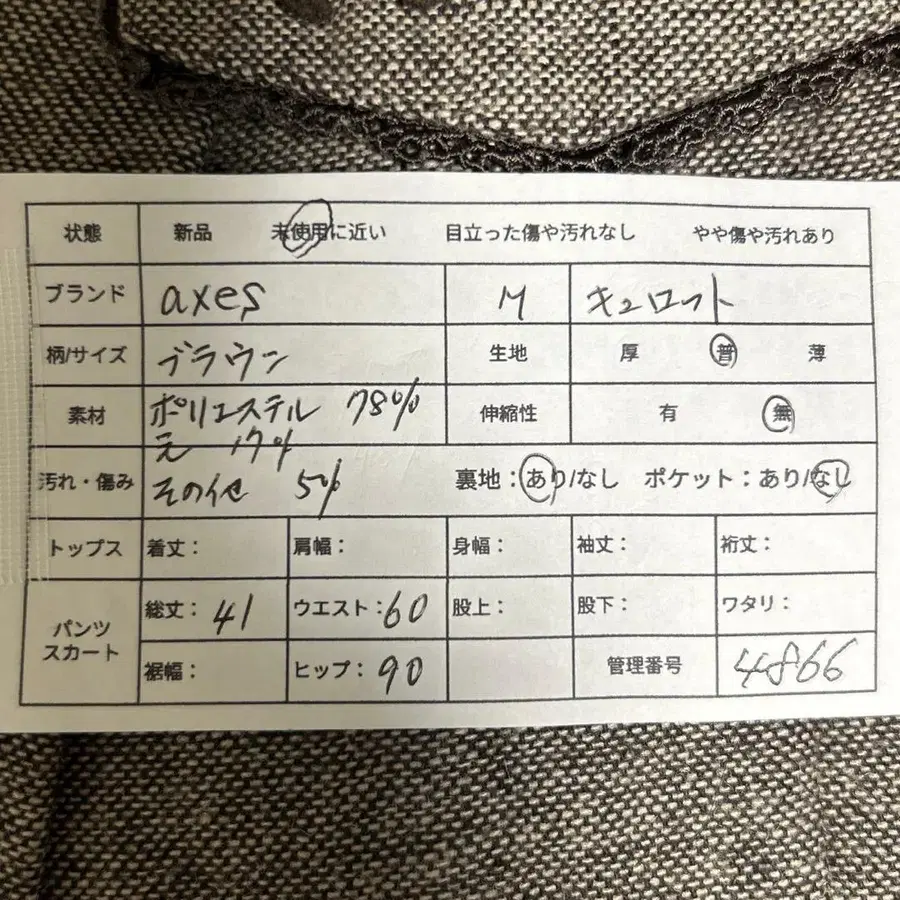 状態 新品 未使用に近い 目立った傷や汚れなし やや傷や汚れあり
ブランド axes M キュロット
柄/サイズ ブラウン 生地 厚 普 薄
素材 ポリエステル 78% 伸縮性 有 無
毛 17%
汚れ・傷み その他 5% 裏地：あり/なし ポケット：あり/なし
トップス 着丈： 肩幅： 身幅： 袖丈： 裄丈：
パンツ スカート 総丈：41 ウエスト：60 股上： 股下： ワタリ：
裾幅： ヒップ：90 管理番号 4866